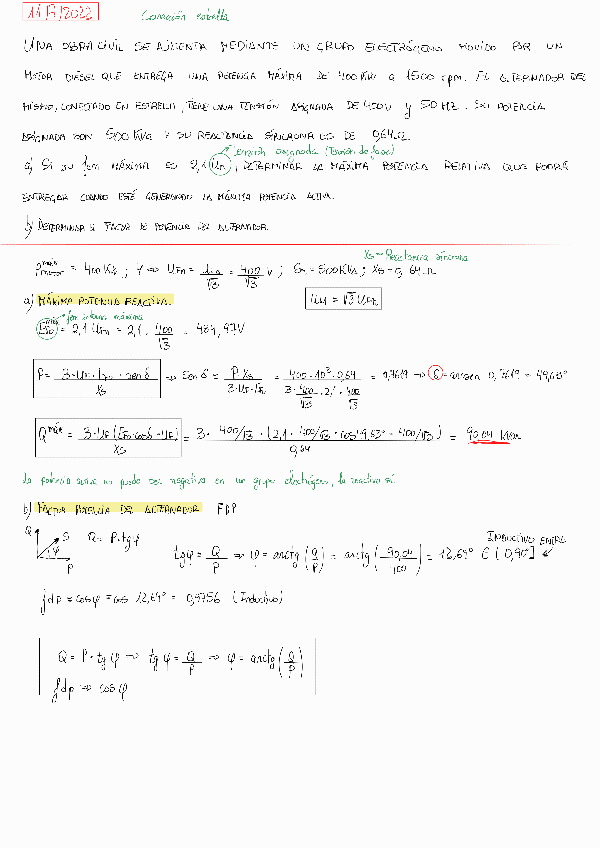 11/11/2022 Conexión estrella
UNA OBRA CIVIL SE ALIMENTA MEDIANTE UN GRUPO ELECTRÓGENO MOVIDO POR UN
MOTOR DIESEL QUE ENTREGA UNA POTENCIA MÁXIMA DE 400 KW a 1500 rpm. EL ALTERNADOR DEL
MISMO, CONECTADO EN ESTRELLA, TIENE UNA TENSIÓN ASIGNADA DE 400V y 50 HZ. SU POTENCIA
ASIGNADA SON 500 KVa Y SU REACTANCIA SÍNCRONA ES DE 0,64Ω.
tensión asignada (Tensión de fase)
a) SI SU fem MÁXIMA ES 2,1 Un, DETERMINAR LA MÁXIMA POTENCIA REACTIVA QUE PODRÁ
ENTREGAR CUANDO ESTÉ GENERANDO LA MÁXIMA POTENCIA ACTIVA.
b) DETERMINAR EL FACTOR DE POTENCIA DEL ALTERNADOR.
Xs = Reactancia síncrona
P motor máx = 400 Kw ; Y ⇒ UFn = ULn/√3 = 400/√3 V ; Sn = 500 KVa ; Xs = 0,64 Ω
a) MÁXIMA POTENCIA REACTIVA. ULn = √3 UFn
fem interna máxima
= 2,1 UFn = 2,1 · 400/√3 = 484,97V
P = 3·UF·EF0·senδ / Xs ⇒ senδ = P·Xs / 3·UF·EF0 = 400·10³·0,64 / 3·400/√3·2,1·400/√3 = 0,7619 ⇒ δ = arcsen 0,7619 = 49,63°
Q máx = 3·UF(EF0·cosδ − UF) / Xs = 3 · 400/√3 · (2,1 · 400/√3 · cos 49,63° − 400/√3) / 0,64 = 90,04 kVAr
La potencia activa no puede ser negativa en un grupo electrógeno, la reactiva sí
b) FACTOR POTENCIA DEL ALTERNADOR FDP
Q S φ P Q = P·tgφ
INDUCTIVO ENTRE
tgφ = Q/P ⇒ φ = arctg(Q/P) = arctg(90,04/400) = 12,69° ∈ [0,90°]
fdp = cosφ = cos 12,69° = 0,9756 (Inductivo)
Q = P·tgφ ⇒ tgφ = Q/P ⇒ φ = arctg(Q/P)
fdp ⇒ cosφ